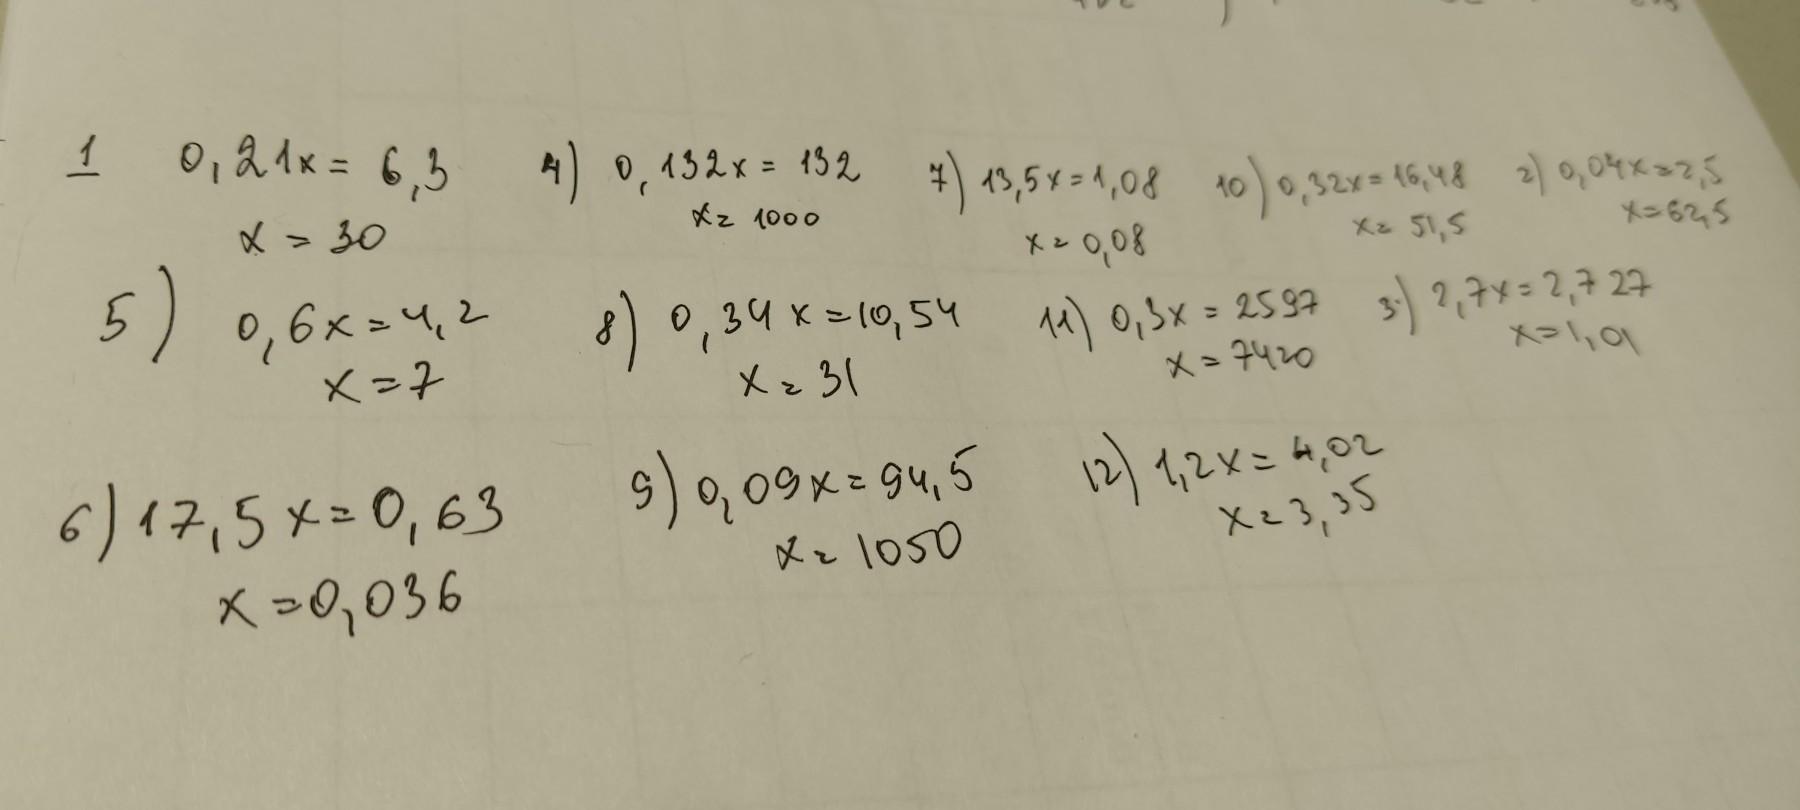 1 0,21x = 6,3
x = 30
4) 0,132x = 132
x = 1000
7) 13,5x = 1,08
x = 0,08
10) 0,32x = 16,48
x = 51,5
2) 0,04x = 2,5
x = 62,5
5) 0,6x = 4,2
x = 7
8) 0,34x = 10,54
x = 31
11) 0,3x = 2597
x = 7420
3) 2,7x = 2,727
x = 1,01
6) 17,5x = 0,63
x = 0,036
9) 0,09x = 94,5
x = 1050
12) 1,2x = 4,02
x = 3,35